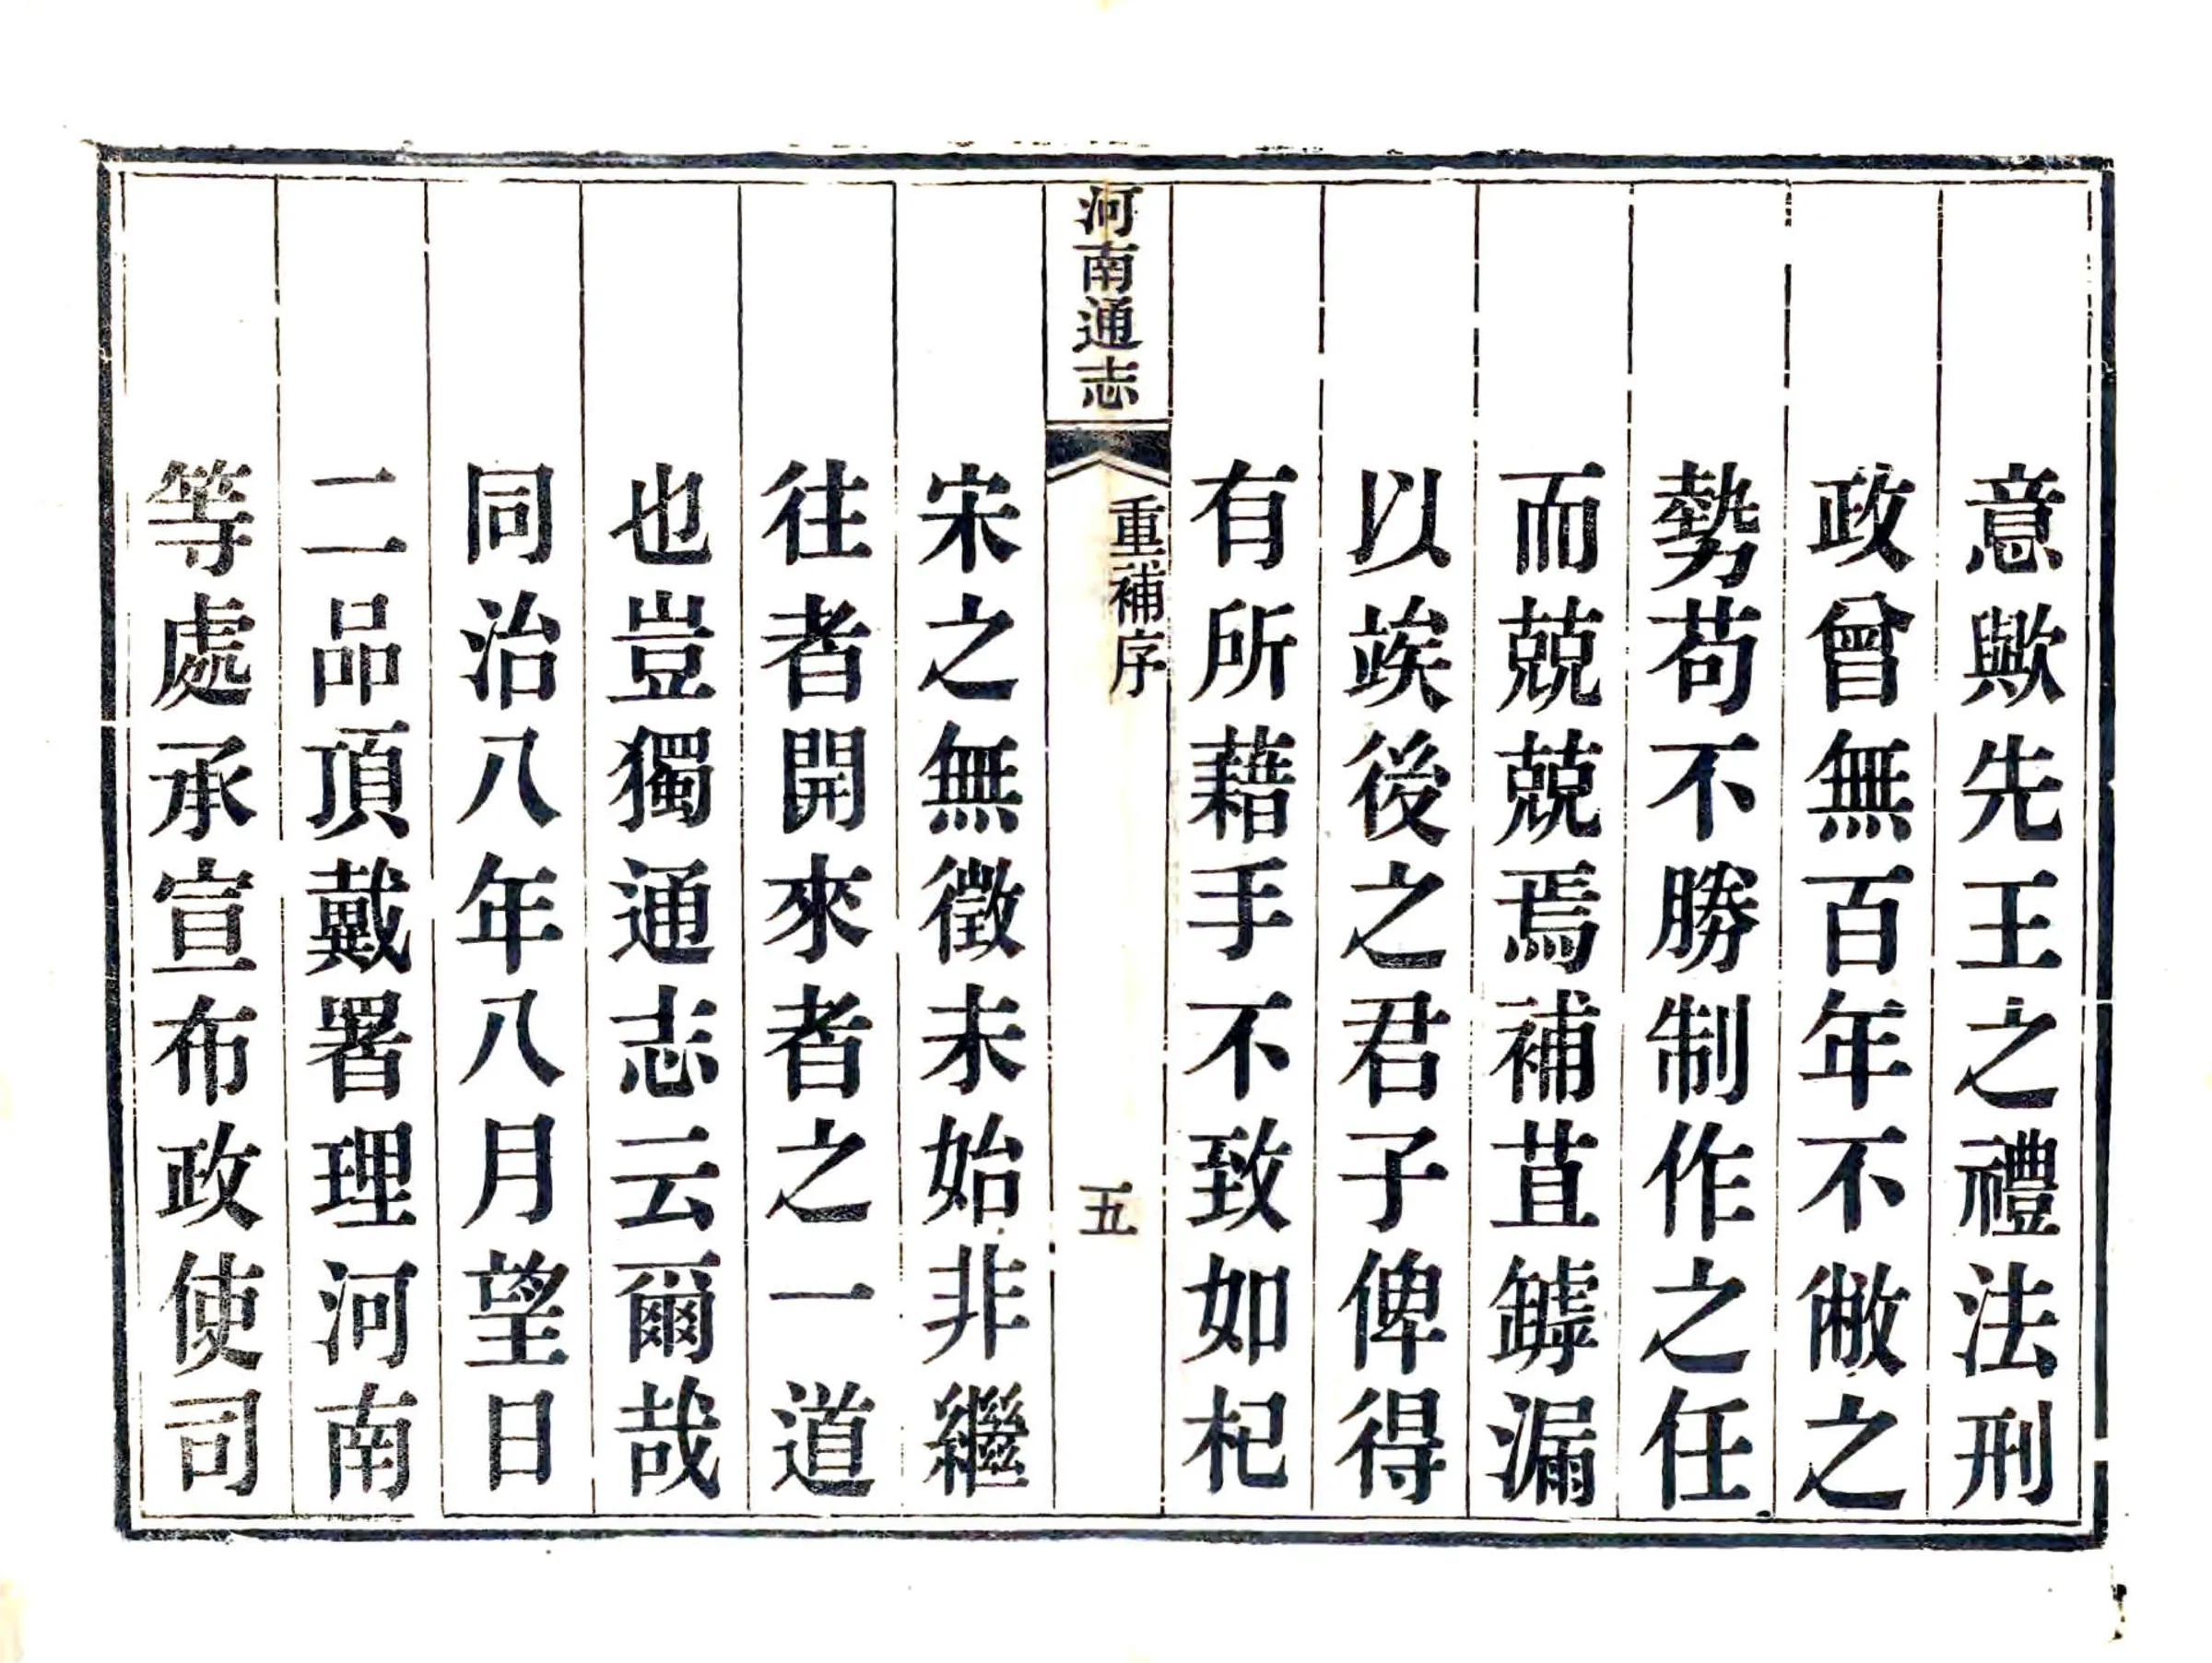 意歟先王之禮法刑
政曾無百年不敝之
勢苟不勝制作之任
而兢兢焉補苴罅漏
以俟後之君子俾得
有所藉手不致如杞
河南通志
重補序
五
宋之無徵未始非繼
往者開來者之一道
也豈獨通志云爾哉
同治八年八月望日
二品頂戴署理河南
等處承宣布政使司